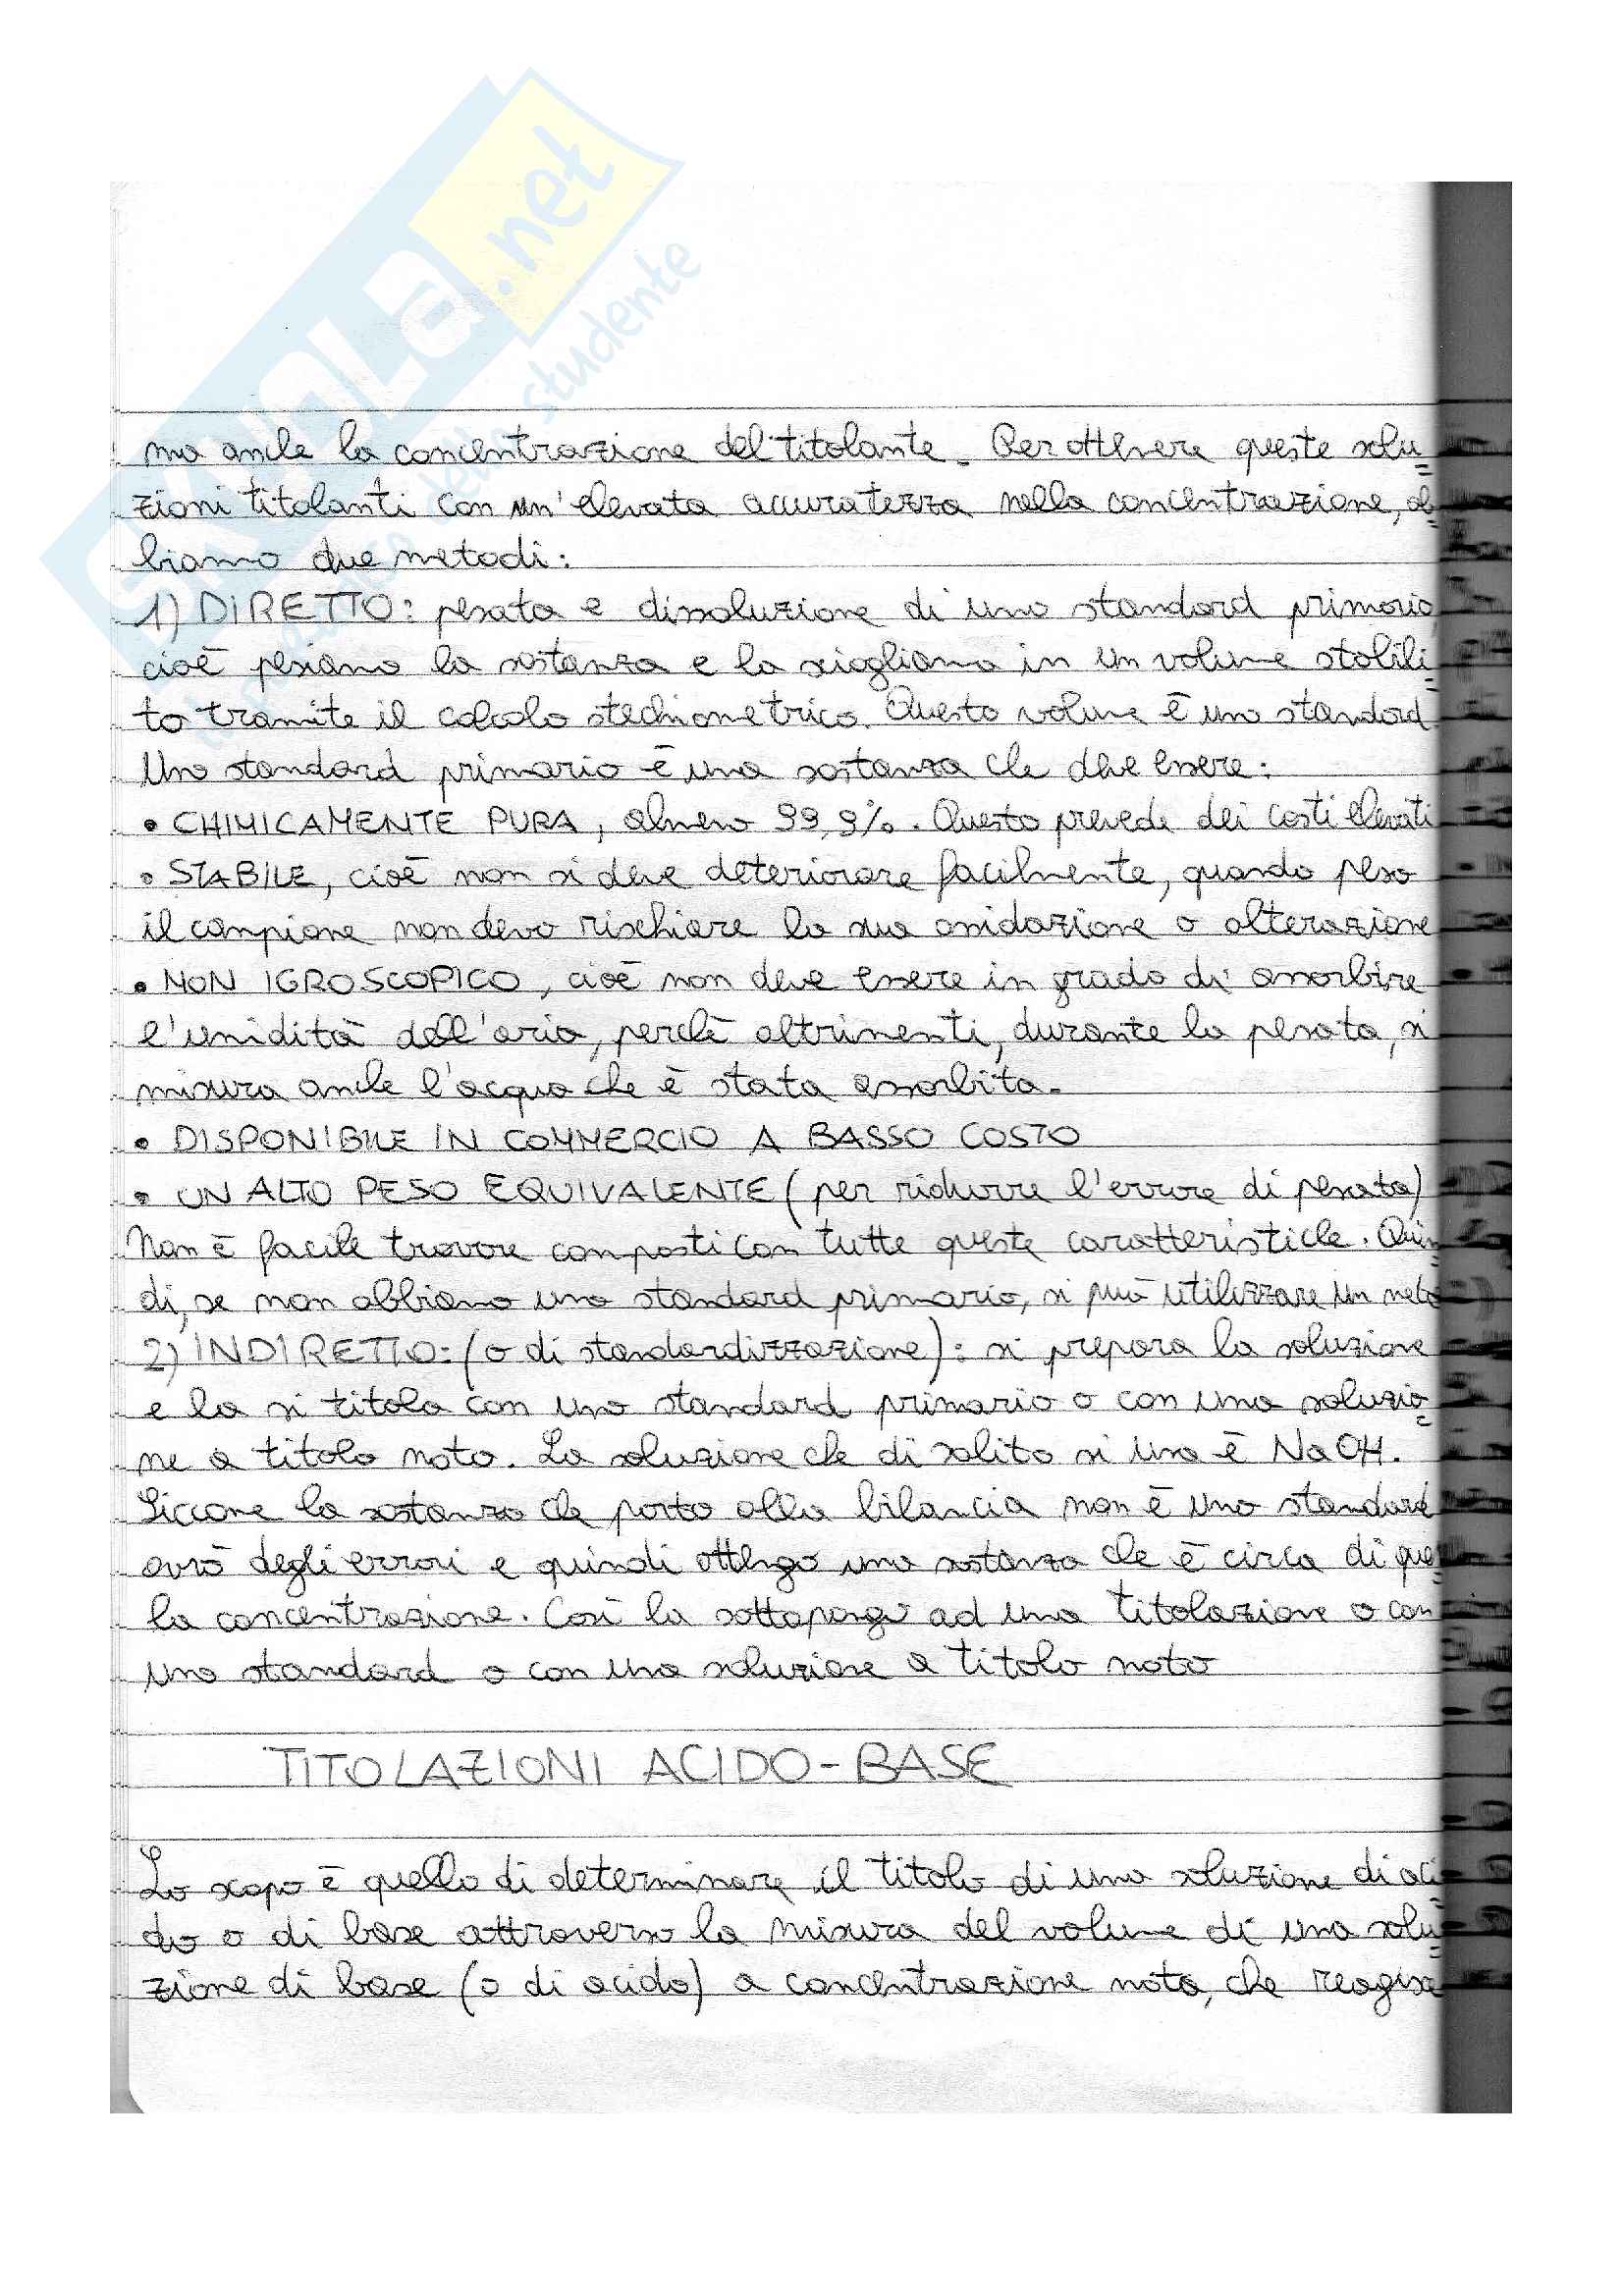 SKUOLA.net
il paradiso dello studente
ma anche la concentrazione del titolante. Per ottenere queste solu
zioni titolanti con un'elevata accuratezza nella concentrazione, ab
biamo due metodi:
1) DIRETTO: pesata e dissoluzione di uno standard primario,
cioè pesiamo la sostanza e la sciogliamo in un volume stabili
to tramite il calcolo stechiometrico. Questo volume è uno standard.
Uno standard primario è una sostanza che deve essere:
• CHIMICAMENTE PURA, almeno 99,9%. Questo prevede dei costi elevati
• STABILE, cioè non si deve deteriorare facilmente, quando peso
il campione non devo rischiare la sua ossidazione o alterazione
• NON IGROSCOPICO, cioè non deve essere in grado di assorbire
l'umidità dell'aria, perchè altrimenti, durante la pesata, si
misura anche l'acqua che è stata assorbita.
• DISPONIBILE IN COMMERCIO A BASSO COSTO
• UN ALTO PESO EQUIVALENTE (per ridurre l'errore di pesata)
Non è facile trovare composti con tutte queste caratteristiche. Quin
di, se non abbiamo uno standard primario, si può utilizzare un meto
2) INDIRETTO: (o di standardizzazione): si prepara la soluzione
e la si titola con uno standard primario o con una soluzio
ne a titolo noto. La soluzione che di solito si usa è NaOH.
Siccome la sostanza che porto alla bilancia non è uno standard
avrò degli errori e quindi ottengo una sostanza che è circa di quel
la concentrazione. Così la sottopongo ad una titolazione o con
uno standard o con una soluzione a titolo noto
TITOLAZIONI ACIDO-BASE
Lo scopo è quello di determinare il titolo di una soluzione di aci
do o di base attraverso la misura del volume di una solu
zione di base (o di acido) a concentrazione nota, che reagisce